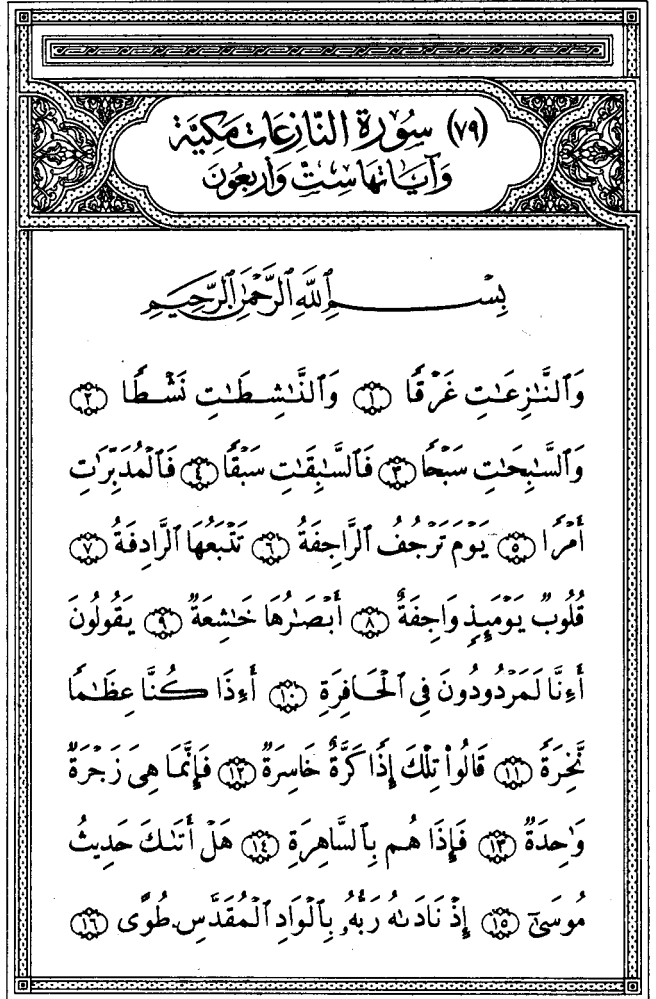 (٧٩) سُورَة النَّازِعَات مَكِيَّة
وَآيَاتُهَا سِتٌّ وَأَرْبَعُونَ
بِسْمِ ٱللَّهِ ٱلرَّحْمَٰنِ ٱلرَّحِيمِ
وَٱلنَّٰزِعَٰتِ غَرْقًا ١ وَٱلنَّٰشِطَٰتِ نَشْطًا ٢
وَٱلسَّٰبِحَٰتِ سَبْحًا ٣ فَٱلسَّٰبِقَٰتِ سَبْقًا ٤ فَٱلْمُدَبِّرَٰتِ
أَمْرًا ٥ يَوْمَ تَرْجُفُ ٱلرَّاجِفَةُ ٦ تَتْبَعُهَا ٱلرَّادِفَةُ ٧
قُلُوبٌ يَوْمَئِذٍ وَاجِفَةٌ ٨ أَبْصَٰرُهَا خَٰشِعَةٌ ٩ يَقُولُونَ
أَءِنَّا لَمَرْدُودُونَ فِى ٱلْحَافِرَةِ ١٠ أَءِذَا كُنَّا عِظَٰمًا
نَّخِرَةً ١١ قَالُوا۟ تِلْكَ إِذًا كَرَّةٌ خَاسِرَةٌ ١٢ فَإِنَّمَا هِىَ زَجْرَةٌ
وَٰحِدَةٌ ١٣ فَإِذَا هُم بِٱلسَّاهِرَةِ ١٤ هَلْ أَتَىٰكَ حَدِيثُ
مُوسَىٰٓ ١٥ إِذْ نَادَىٰهُ رَبُّهُۥ بِٱلْوَادِ ٱلْمُقَدَّسِ طُوًى ١٦